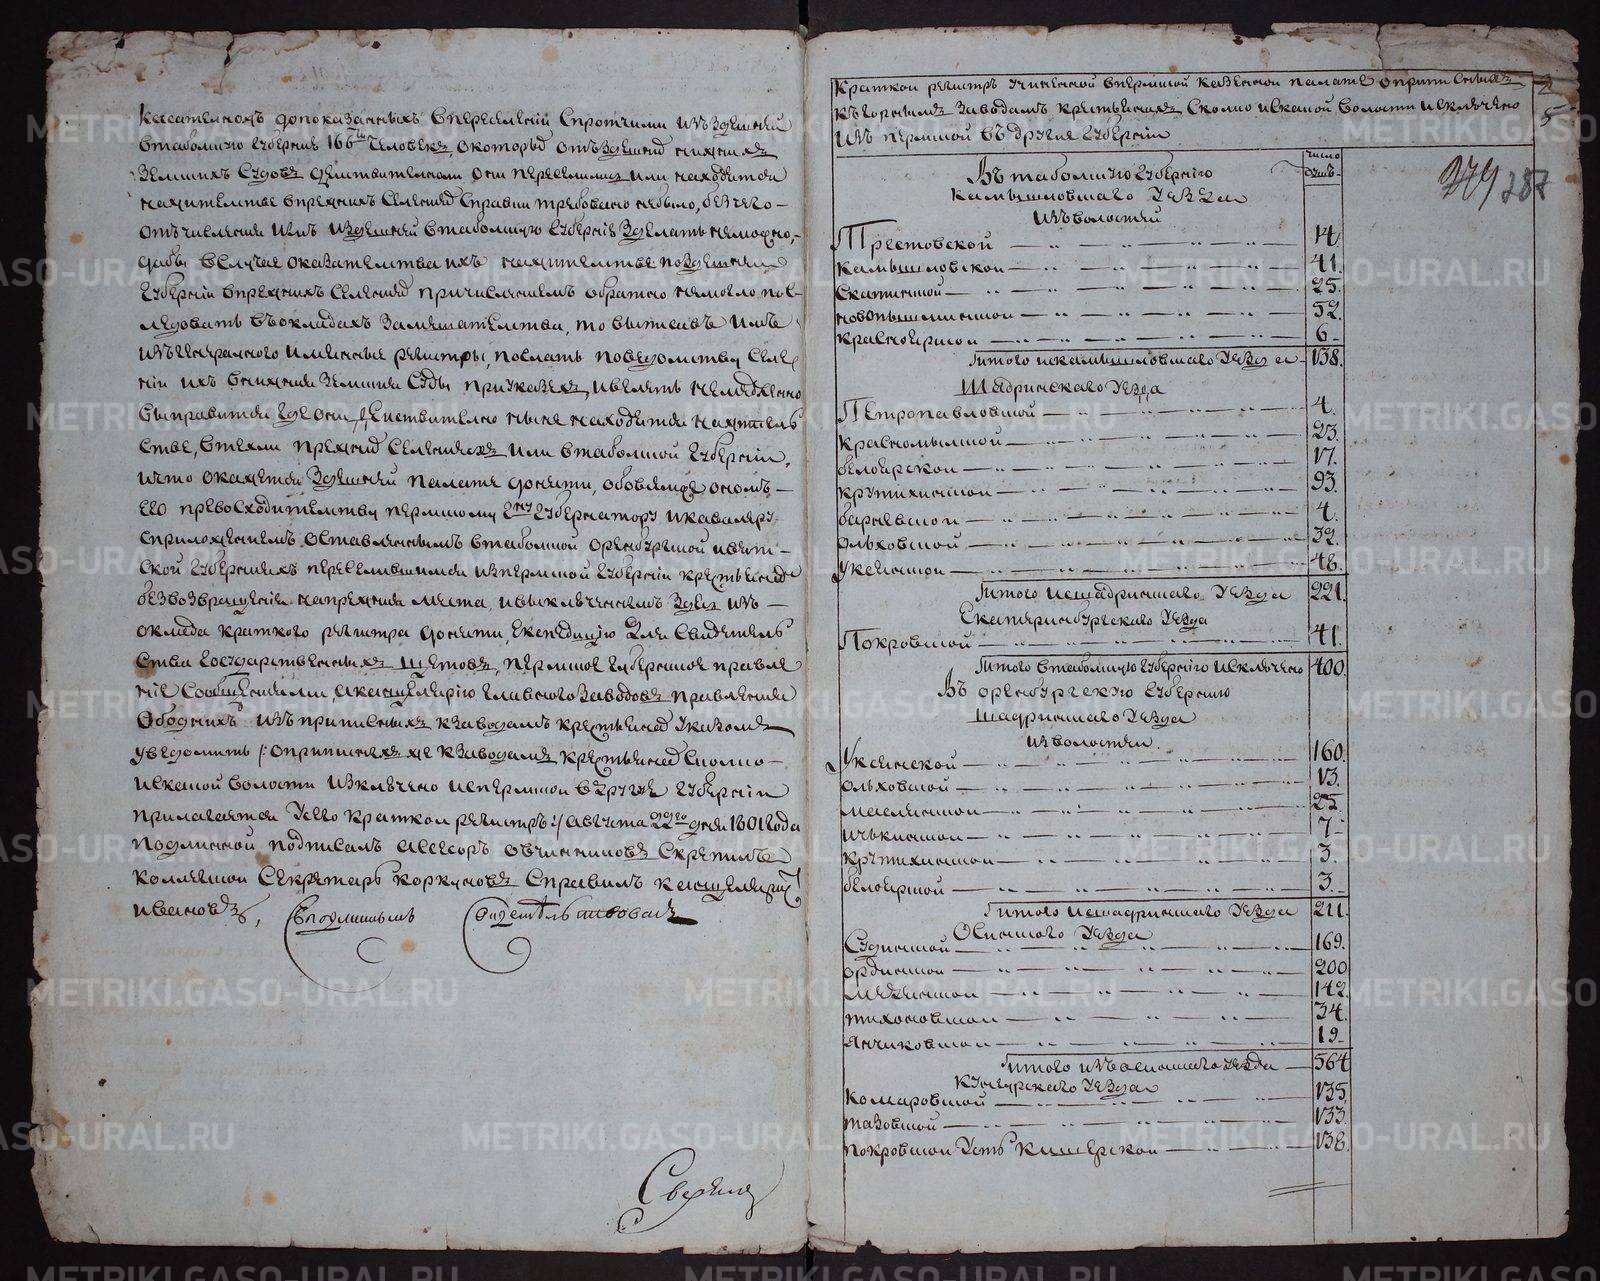 касателножъ допоказанныхъ впереселенiй спротчими изъ здешней
втаболную губернiю 166ть человекъ, окоторыхъ отъ здешнихъ нижнихъ
земскихъ судовъ действителноли они переселились или находятся
нажителстве впрежнихъ селенiяхъ справки требовано небыло, безчего
отъчисленiя изъ здешней втаболскую губернiю зделать неможно,
дабы вслучае оказателства ихъ нажителстве поздешней
губернiи впрежнихъ селенiяхъ причисленiемъ обратно немогло
последовать въокладахъ замешателства, то выписавъ изъ
имянные регистры, послать поведомству
нiи ихъ внижнiя земскiя суды приказехъ, ивелеть немедленно
выправится где они действително ныне находятся нажитель
стве, втехли прежнихъ селенiяхъ или втаболской губернiи,
ичто окажется здешней палате донести, обовсемже ономъ
его превосходителству пермскому губернатору икавалеру
сприложенiемъ оставленнымъ втаболской оренбургской ивят
ской губернiяхъ переселившимся изпермской губернiи крестьянамъ
безвозвращенiя напрежнiя места, ивыключеннымъ здесь изъ
оклада краткого регистра донести, експедицiю для свидетель
ства государственныхъ щетовъ, пермское губернское правле
нiе сообщенiями, аканцелярiю главного заводовъ правленiя
ободныхъ изъ приписныхъ кзаводамъ крестьянахъ указомъ
уведомить /: оприписныхъ же кзаводамъ крестьянахъ сколко
искакой волости изключено испермской вдругiе губернiи
прилагается унего краткой регистръ :/ августа 22го дня 1801 года
подлинной подписалъ асессоръ овчинниковъ скрепилъ
коллежской секретарь коркуновъ справилъ канцеляристъ
ивановъ,
Сподлиннымъ свидетельствовалъ
краткой регистръ учиненной впермской казенной палате оприписныхъ
къгорнымъ заводамъ крестьянахъ сколко искакой волости исключено
изъ пермской въ другiе губернiи
число
душъ
2
5
379 287
Въ таболскую губернiю
камышловскаго уезда
изъ волостей
Трестовской 14.
камышловской 41.
скатинской 25.
новопышминской 52.
красноярской 6
итого искамышловскаго уезда 138.
Шадринскаго уезда
Петропавловской 4.
красномыской 23.
белоярской 17.
крутихинской 93.
барневской 4.
ольховской 32.
уксянской 48.
итого исшадринскаго уезда 221.
Екатеринбургскаго уезда
Покровской 41.
итого втаболскую губернiю исключено 400.
Въ оренбургскую губернiю
шадринскаго уезда
изволостей.
Уксянской 160.
ольховской 13.
маслянской 25.
ичкинской 7
крутихинской 3.
белоярской 3.
итого исшадринскаго уезда 211.
Осинского уезда
Судинской 169.
ординской 200
медянской 142.
тихоновской 34.
янчиковской 19
итого изъосинскаго уезда 564
кунгурскаго уезда
комаровской 135.
тазовской 133.
покровской усть кишерской 138.